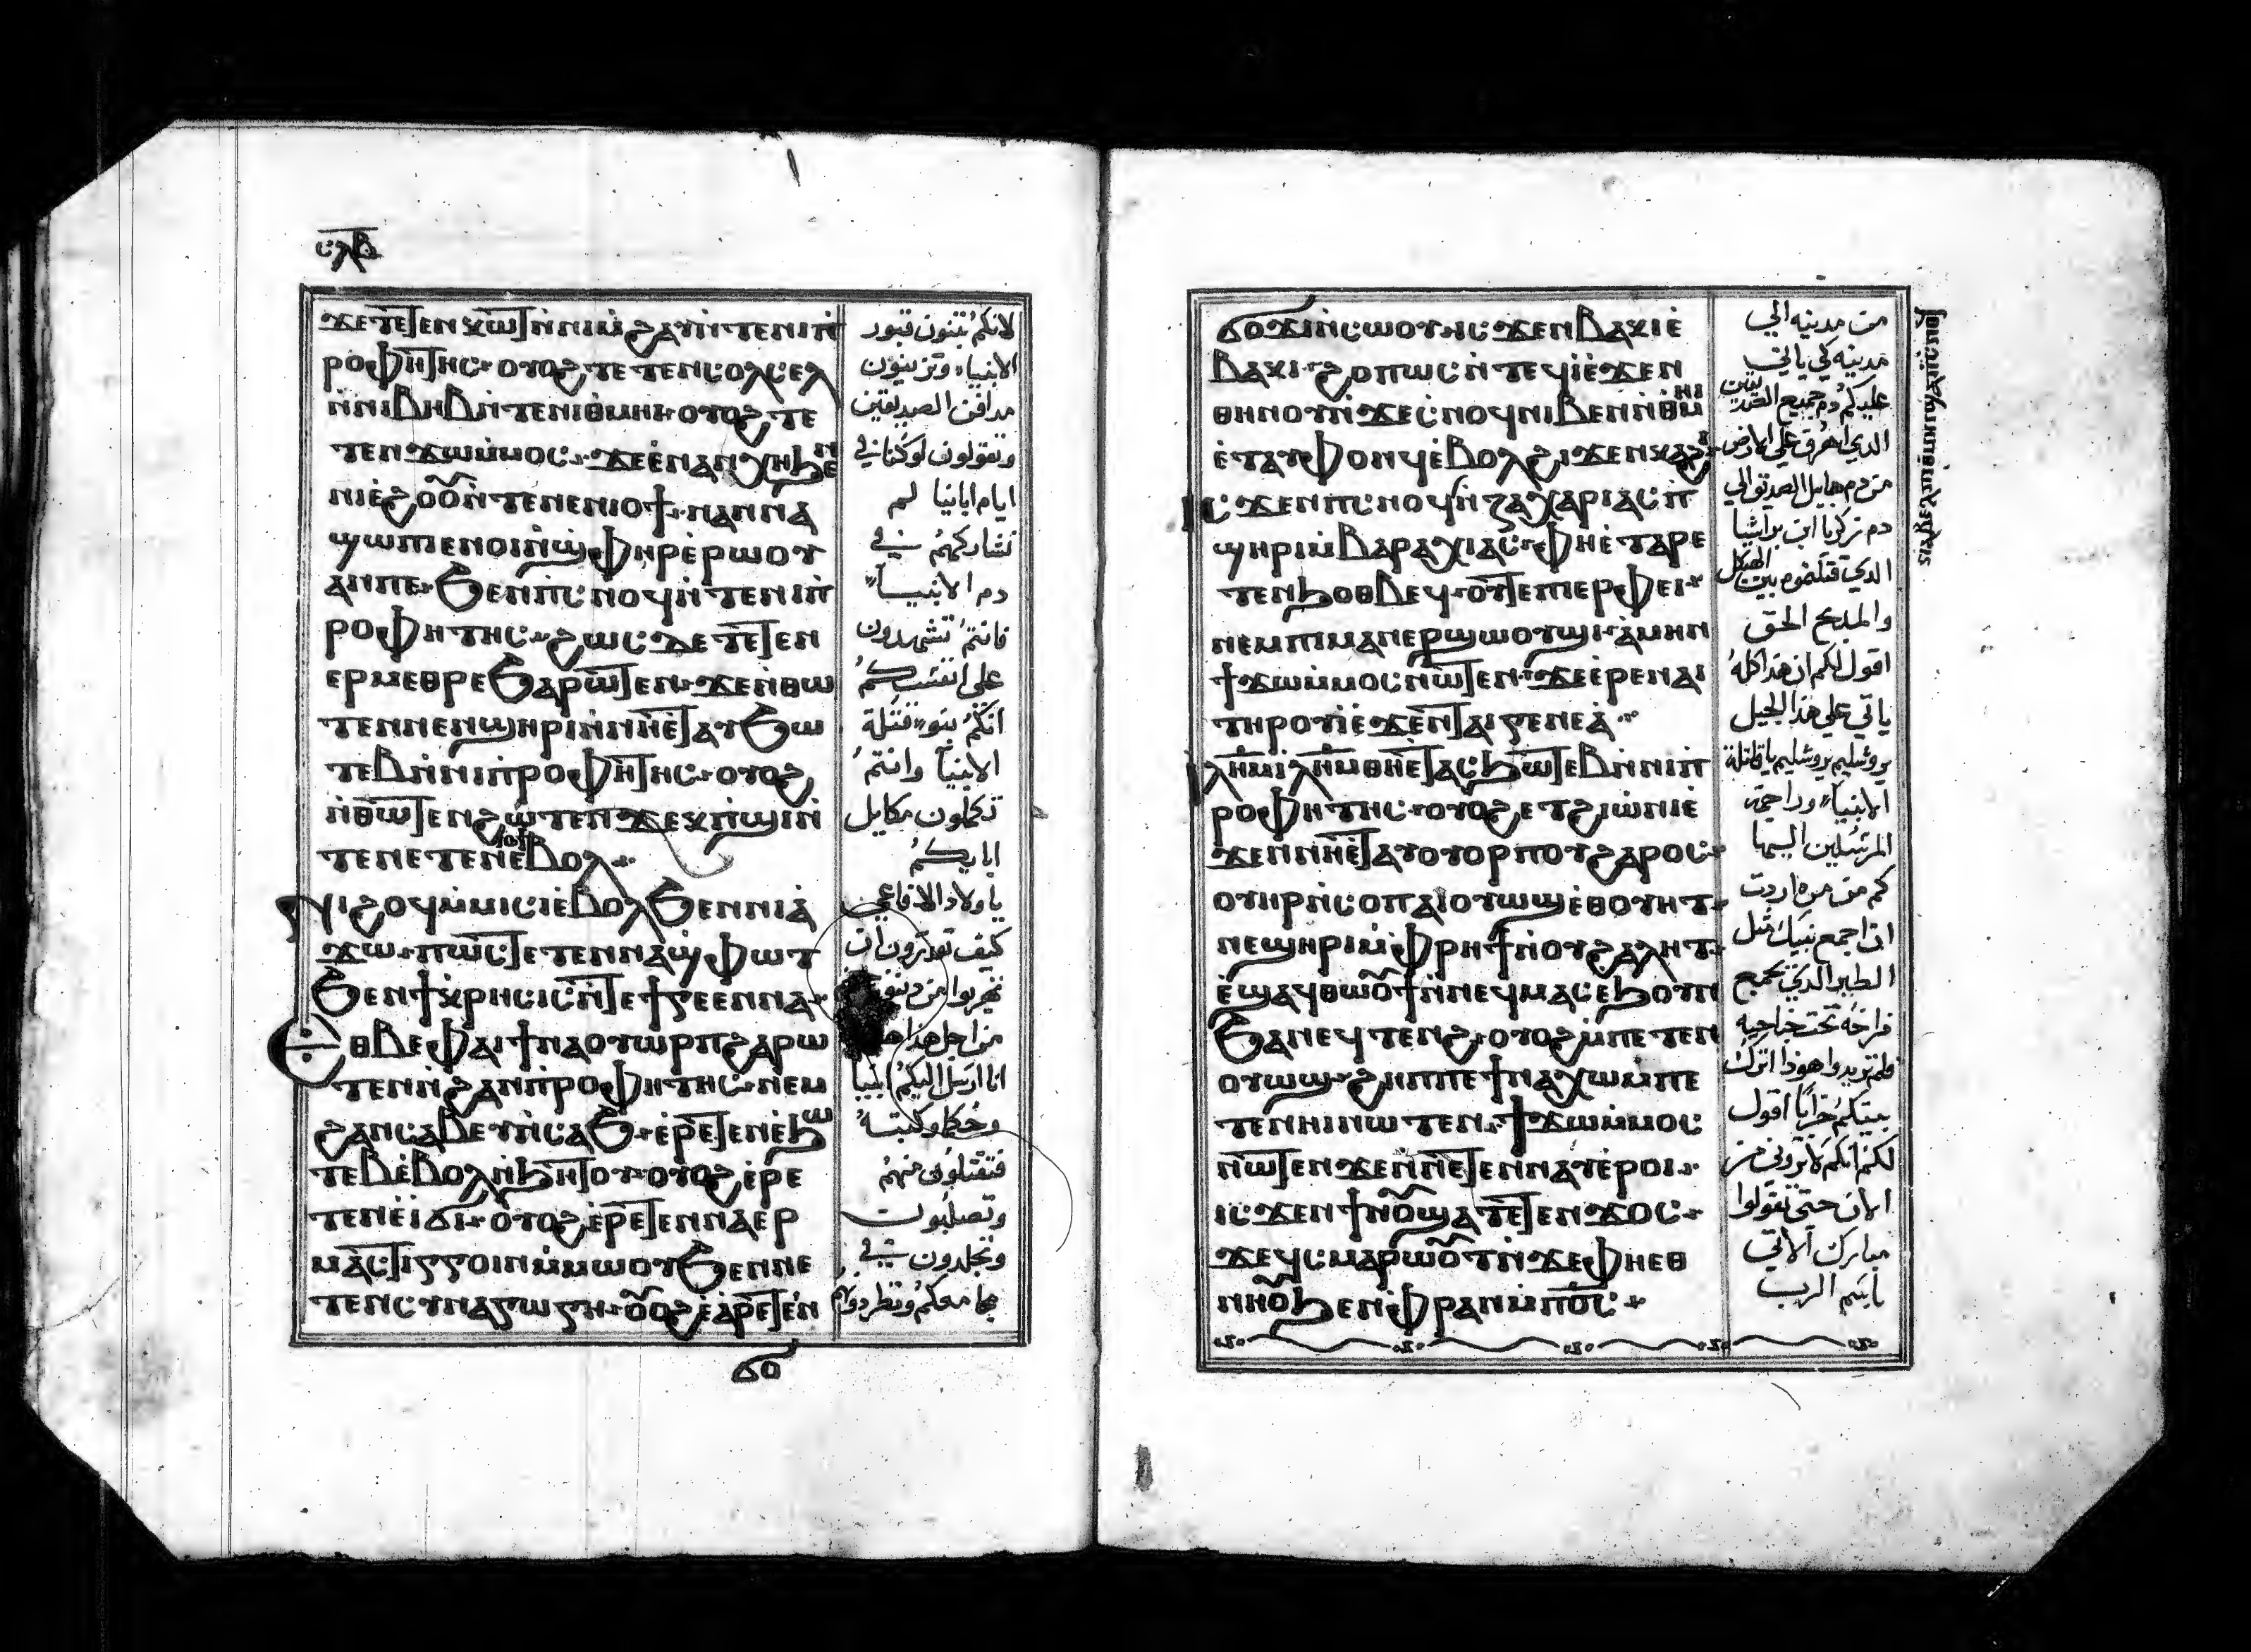 ⲥⲗⲃ
ϫⲉⲧⲉⲧⲉⲛⲕⲱⲧ ⲛ̀ⲛⲓⲙ̀ϩⲁⲩ ⲛ̀ⲧⲉⲛⲓⲡ̀
ⲣⲟⲫⲏⲧⲏⲥ· ⲟⲩⲟϩ ⲧⲉⲧⲉⲛⲥⲟⲗⲥⲉⲗ
ⲛ̀ⲛⲓⲃⲏⲃ ⲛ̀ⲧⲉⲛⲓⲑⲙⲏⲓ· ⲟⲩⲟϩ ⲧⲉ
ⲧⲉⲛϫⲱⲙ̀ⲙⲟⲥ· ϫⲉⲉⲛⲁⲛⲭⲏϧⲉⲛ
ⲛⲓⲉ̀ϩⲟⲟⲩ ⲛ̀ⲧⲉⲛⲉⲛⲓⲟϯ· ⲛⲁⲛⲛⲁ
ϣⲱⲡⲓ ⲉⲛⲟⲓ ⲛ̀ϣⲫⲏⲣ ⲉ̀ⲣⲱⲟⲩ
ⲁⲛⲡⲉ· ϧⲉⲛⲡⲥⲛⲟϥ ⲛ̀ⲧⲉⲛⲓⲡ̀
ⲣⲟⲫⲏⲧⲏⲥ· ϩⲱⲥⲇⲉ ⲧⲉⲧⲉⲛ
ⲉⲣⲙⲉⲑⲣⲉ ϧⲁⲣⲱⲧⲉⲛ· ϫⲉⲛ̀ⲑⲱ
ⲧⲉⲛⲛⲉⲛϣⲏⲣⲓ ⲛ̀ⲛⲏⲉ̀ⲧⲁⲩϧⲱ
ⲧⲉⲃ ⲛ̀ⲛⲓⲡ̀ⲣⲟⲫⲏⲧⲏⲥ· ⲟⲩⲟϩ
ⲛ̀ⲑⲱⲧⲉⲛ ϩⲱⲧⲉⲛ ϫⲉⲕⲡ̀ϣⲓ ⲛ̀
ⲧⲉⲛⲉⲧⲉⲛⲓⲟϯ ⲉ̀ⲃⲟⲗ·
ⲛⲓϩⲟϥ ⲙ̀ⲙⲓⲥⲓ ⲉ̀ⲃⲟⲗϧⲉⲛⲛⲓⲁ̀
ϫⲱ· ⲡⲱⲥ ⲧⲉⲧⲉⲛⲛⲁϣⲫⲱⲧ
ϧⲉⲛϯⲕⲣⲏⲥⲓⲥ ⲛ̀ⲧⲉϯⲅⲉⲉⲛⲛⲁ·
ⲉⲑⲃⲉⲫⲁⲓ ϯⲛⲁⲟⲩⲱⲣⲡ ϩⲁⲣⲱ
ⲧⲉⲛ ⲛ̀ϩⲁⲛⲡ̀ⲣⲟⲫⲏⲧⲏⲥ· ⲛⲉⲙ
ϩⲁⲛⲥⲁⲃⲉⲩ ⲛ̀ⲥⲁϧ· ⲉ̀ⲣⲉⲧⲉⲛⲉ̀ϧⲱ
ⲧⲉⲃ ⲉ̀ⲃⲟⲗ ⲛ̀ϧⲏⲧⲟⲩ· ⲟⲩⲟϩ ⲉ̀ⲣⲉ
ⲧⲉⲛⲉ̀ⲓϣⲓ· ⲟⲩⲟϩ ⲉ̀ⲣⲉⲧⲉⲛⲛⲁⲉⲣ
ⲙⲁⲥⲧⲓⲅⲅⲟⲓⲛ ⲙ̀ⲙⲱⲟⲩ ϧⲉⲛⲛⲉ
ⲧⲉⲛⲥⲩⲛⲁⲅⲱⲅⲏ· ⲟⲩⲟϩ ⲉ̀ⲣⲉⲧⲉⲛ
ϭⲟ
لانكم تبنون قبور
الانبياء وتزينون
مدافن الصديقين
وتقولون لو كنا في
ايام ابائنا لم
نشاركهم في
دم الانبياء
فانتم تشهدون
على انفسكم
انكم بنو قتلة
الانبيا وانتم
تكملون مكايل
ابايكم
يا ولاد الافاعي
كيف تقدرون ان
تهربوا من دينونة
من اجل هذا
انا ارسل اليكم انبيا
وحكما وكتبه
فتقتلون منهم
وتصلبون
وتجلدون في
مجامعكم وتطردونهم
ϭⲟϫⲓ ⲛ̀ⲥⲱⲟⲩ ⲓⲥϫⲉⲛⲃⲁⲕⲓ ⲉ̀
ⲃⲁⲕⲓ· ϩⲟⲡⲱⲥ ⲛ̀ⲧⲉϥⲓ̀ ⲉ̀ϫⲉⲛ
ⲑⲏⲛⲟⲩ ⲛ̀ϫⲉⲥ̀ⲛⲟϥ ⲛⲓⲃⲉⲛ ⲛ̀ⲑⲙⲏⲓ
ⲉ̀ⲧⲁⲩⲫⲟⲛϥ ⲉ̀ⲃⲟⲗ ϩⲓϫⲉⲛⲡⲕⲁϩⲓ·
ⲓⲥϫⲉⲛⲡⲥⲛⲟϥ ⲛ̀ⲍⲁⲭⲁⲣⲓⲁⲥ ⲡ̀
ϣⲏⲣⲓ ⲙ̀ⲃⲁⲣⲁⲭⲓⲁⲥ· ⲫⲏⲉ̀ⲧⲁⲣⲉ
ⲧⲉⲛϧⲟⲑⲃⲉϥ· ⲟⲩⲧⲉⲡⲓⲉⲣⲫⲉⲓ·
ⲛⲉⲙⲡⲓⲙⲁⲛⲉⲣϣⲱⲟⲩϣⲓ· ⲁ̀ⲙⲏⲛ
ϯϫⲱⲙ̀ⲙⲟⲥ ⲛⲱⲧⲉⲛ· ϫⲉⲉ̀ⲣⲉⲛⲁⲓ
ⲧⲏⲣⲟⲩ ⲓ̀ⲉ̀ϫⲉⲛⲧⲁⲓⲅⲉⲛⲉⲁ̀·
ⲓⲗⲏⲙ ⲓⲗⲏⲙ ⲑⲏⲉ̀ⲧⲁⲥϧⲱⲧⲉⲃ ⲛ̀ⲛⲓⲡ̀
ⲣⲟⲫⲏⲧⲏⲥ· ⲟⲩⲟϩ ⲉⲧϩⲓⲱ̀ⲛⲓ ⲉ̀
ϫⲉⲛⲛⲏⲉ̀ⲧⲁⲩⲟⲩⲟⲣⲡⲟⲩ ϩⲁⲣⲟⲥ·
ⲟⲩⲏⲣ ⲛ̀ⲥⲟⲡ ⲁⲓⲟⲩⲱϣ ⲉ̀ⲑⲟⲩⲏⲧ·
ⲛⲉϣⲏⲣⲓ ⲙ̀ⲫⲣⲏϯ ⲛ̀ⲟⲩϩⲁⲗⲏⲧ·
ⲉ̀ϣⲁϥⲑⲱⲟⲩϯ ⲛ̀ⲛⲉϥⲙⲁⲥ ⲉϧⲟⲩⲛ
ϧⲁⲛⲉϥⲧⲉⲛϩ· ⲟⲩⲟϩ ⲙ̀ⲡⲉⲧⲉⲛ
ⲟⲩⲱϣ· ϩⲏⲡⲡⲉ ϯⲛⲁⲭⲱ ⲙ̀ⲡⲉ
ⲧⲉⲛⲏⲓ ⲛⲱⲧⲉⲛ· ϯϫⲱⲙ̀ⲙⲟⲥ
ⲛⲱⲧⲉⲛ ϫⲉⲛ̀ⲛⲉⲧⲉⲛⲛⲁⲩ ⲉ̀ⲣⲟⲓ·
ⲓⲥϫⲉⲛϯⲛⲟⲩ ϣⲁⲧⲉⲧⲉⲛϫⲟⲥ·
ϫⲉϥⲥⲙⲁⲣⲱⲟⲩⲧ ⲛ̀ϫⲉⲫⲏⲉⲑ
ⲛⲏⲟⲩ ϧⲉⲛⲫⲣⲁⲛ ⲙ̀ⲡⲟⲥ·
من مدينه الي
مدينه لكي ياتي
عليكم دم جميع الصديقين
الذي اهرق علي الارض
من دم هابيل الصديق الي
دم زكريا ابن براشيا
الذي قتلتموه بين الهيكل
والمذبح الحق
اقول لكم ان هذا كله
ياتي علي هذا الجيل
يروشليم يروشليم يا قاتلة
الانبياء وراجمة
المرسلين اليها
كم من مره اردت
ان اجمع بنيك مثل
الطير الذي يجمع
فراخه تحت جناحيه
فلم تريدوا هوذا اترك
بيتكم خرابا اقول
لكم انكم لا تروني من
الان حتى تقولوا
مبارك الاتي
باسم الرب